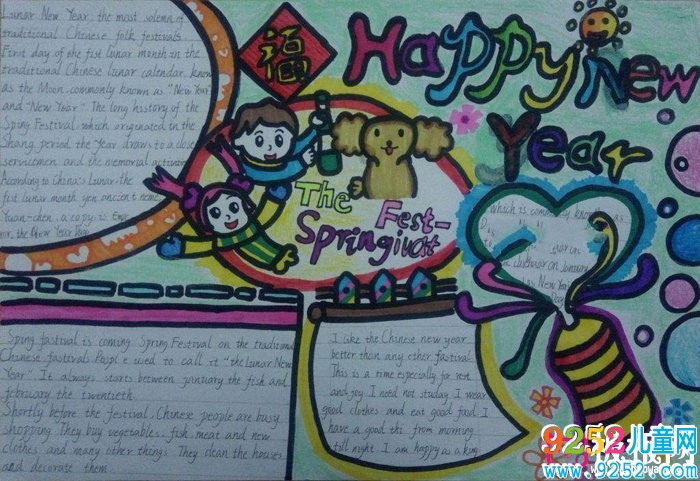 Lunar New Year, the most solemn of
traditional Chinese folk festivals.
First day of the fist lunar month in the
traditional Chinese lunar calendar, known
as the Moon, commonly known as "New Year"
and "New Year". The long history of the
Sping Festival, which originated in the
Shang period the Year draws to a close
servicemen and the memorial activities
According to China's Lunar, the
fist lunar month
Yuan-chen, a copy is
福
Happy New
Year
The
Spring
Fest-
which is commonly known as
on January
New Year
Sping fastival is coming Spring Festival on the traditiona
Chinese fastival. People used to call it "the Lunar New
Year". It always starts between january the fish and
february the twentieth.
Shortly before the festival, Chinese people are busy
shopping. They buy vegetables, fish meat and new
clothes and many other things. They clean the houses
and decorate them.
I like the Chinese new year
better than any other fastival.
This is a time especially for rest
and joy. I need not studay. I wear
good clothes and eat good food. I
have a good thi from morning
till night. I am happy as a king.
9252儿童网
www.9252.com